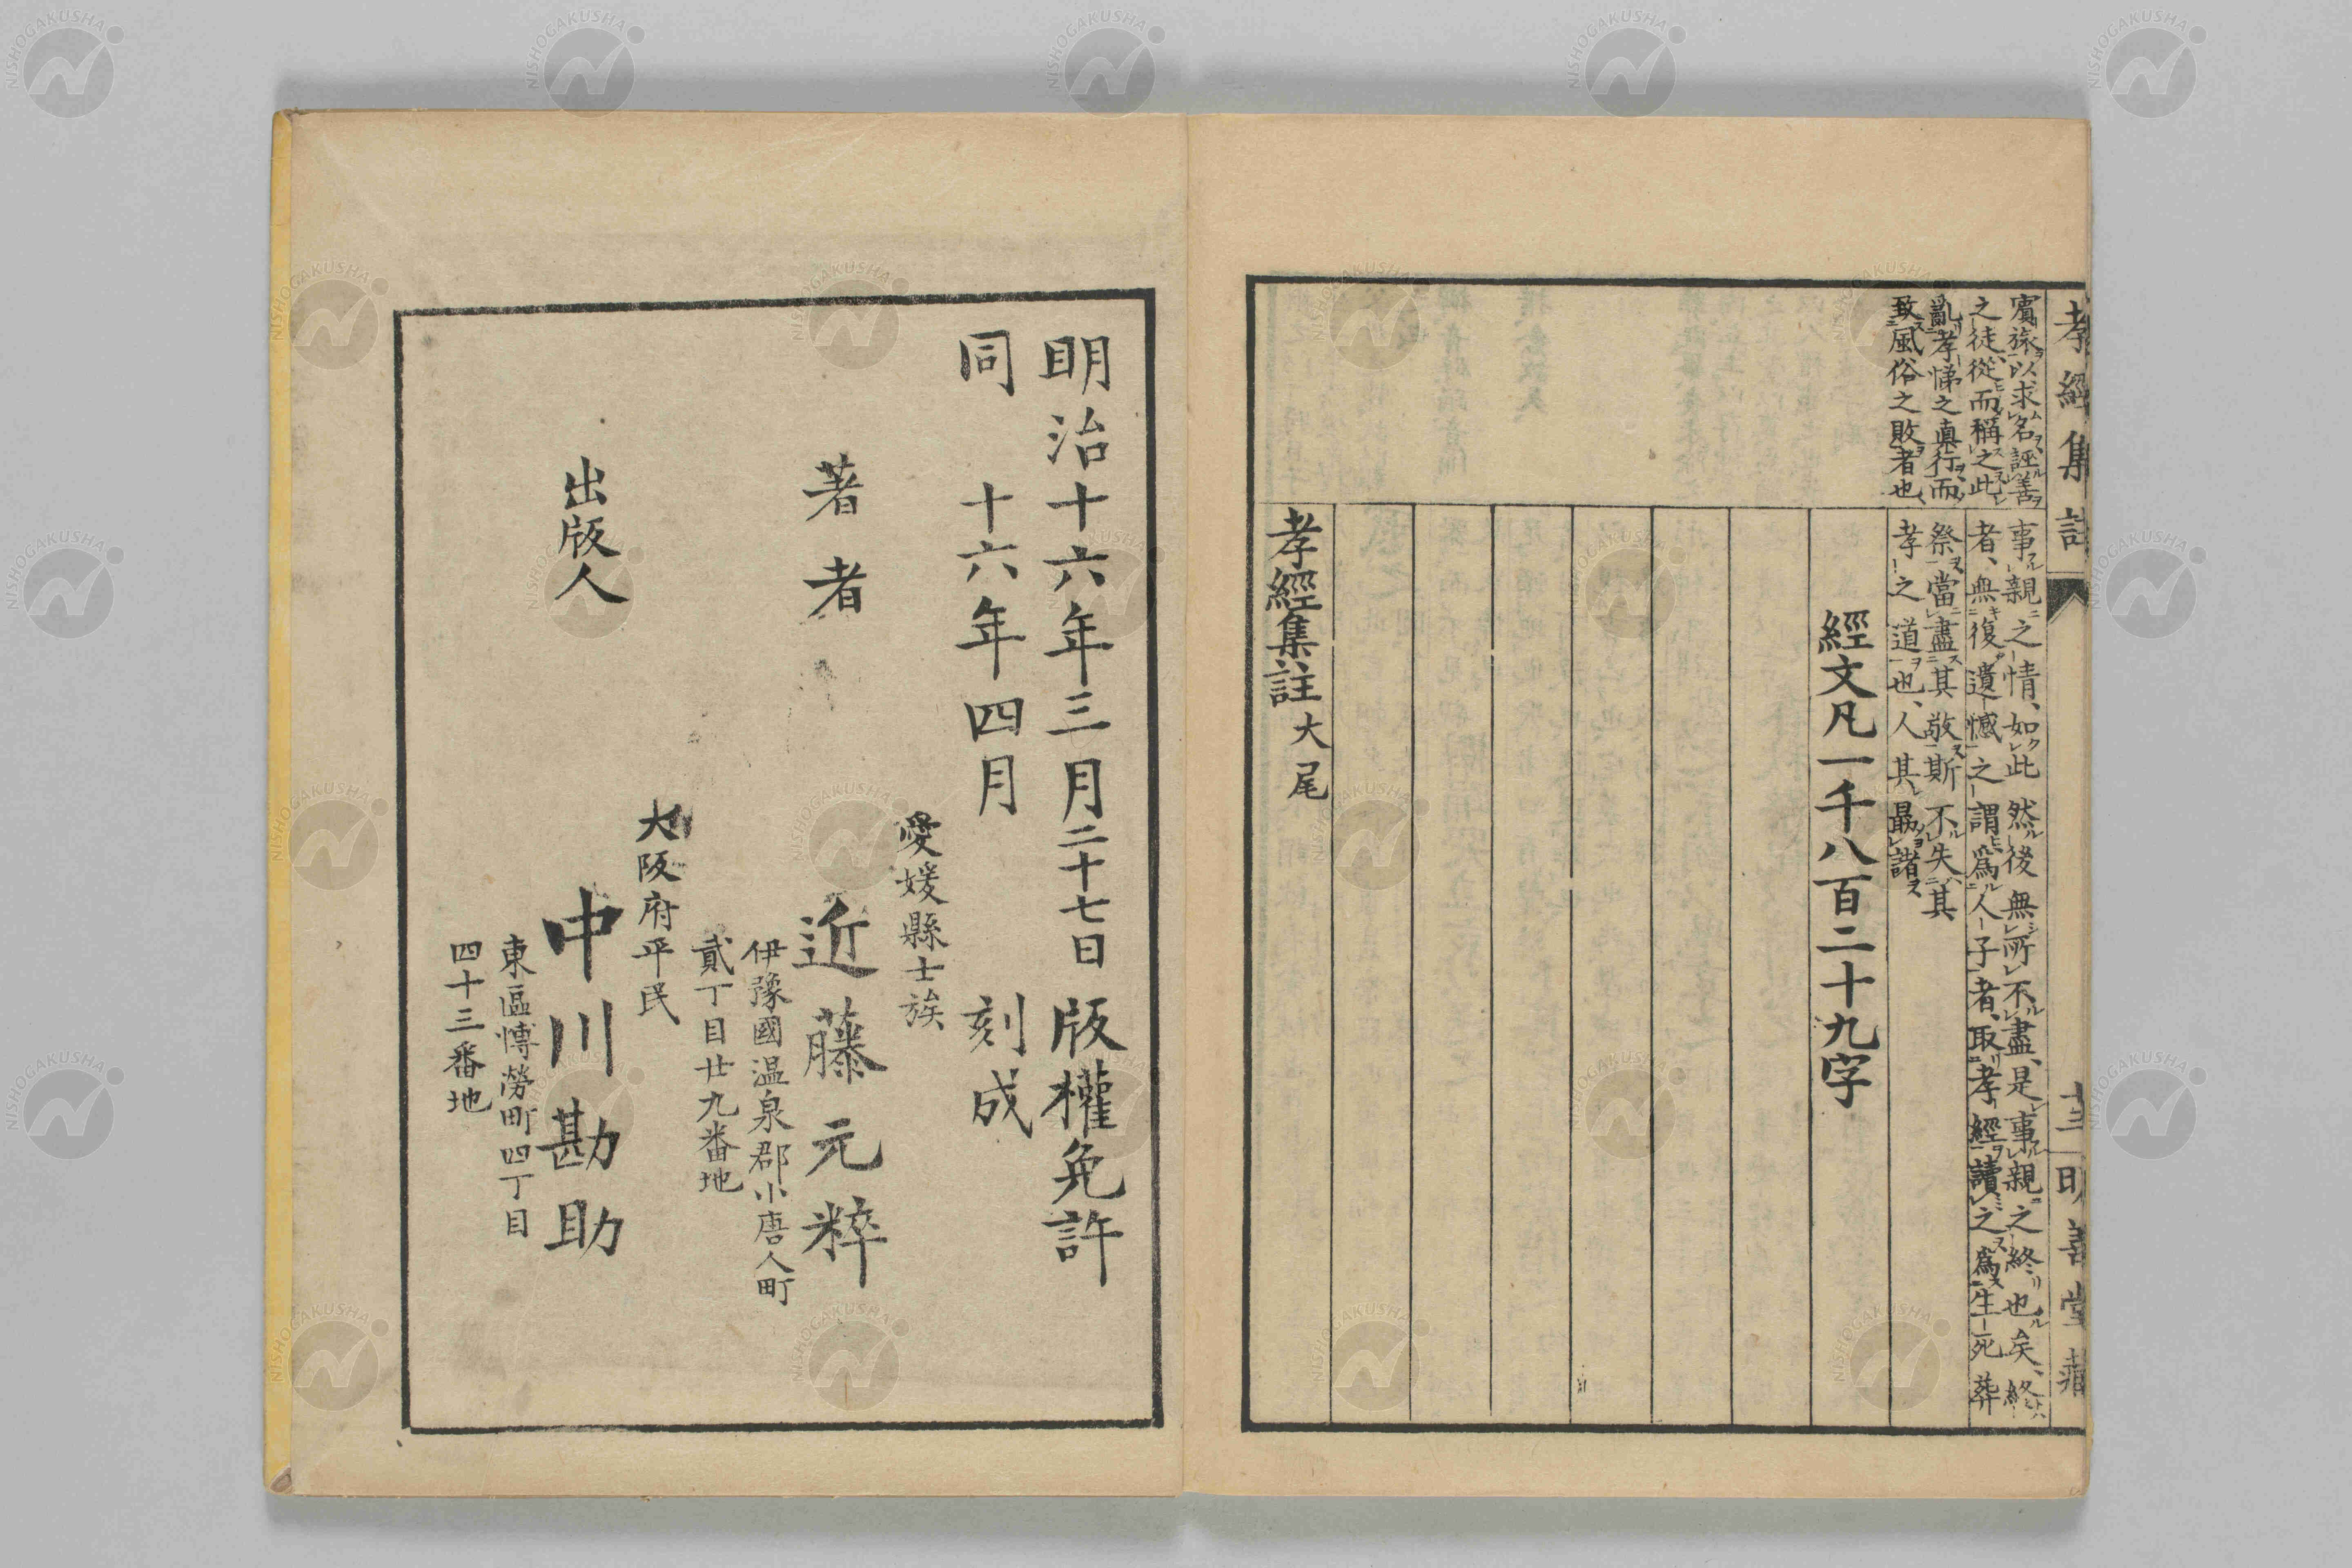 孝經集註
明善堂藏
賓旅以求名誣善
之徒從而稱之此
亂孝悌之眞行而
致風俗之敗者也
事親之情、如此然後無所不盡、是事親之終也矣、終
者、無復遺憾之謂爲人子者、取孝經讀之爲生死葬
祭當盡其敬斯不失其
孝之道也、人其最諸
經文凡一千八百二十九字
孝經集註大尾
明治十六年三月二十七日版權免許
同十六年四月刻成
愛媛縣士族
著者近藤元粹
伊豫國温泉郡小唐人町
貳丁目廿九番地
大阪府平民
出版人中川勘助
東區愽勞町四丁目
四十三番地
NISHOGAKUSHA